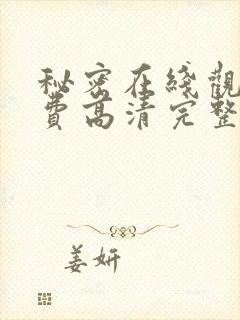 秘密在綫觀
費高清完整
姜妍